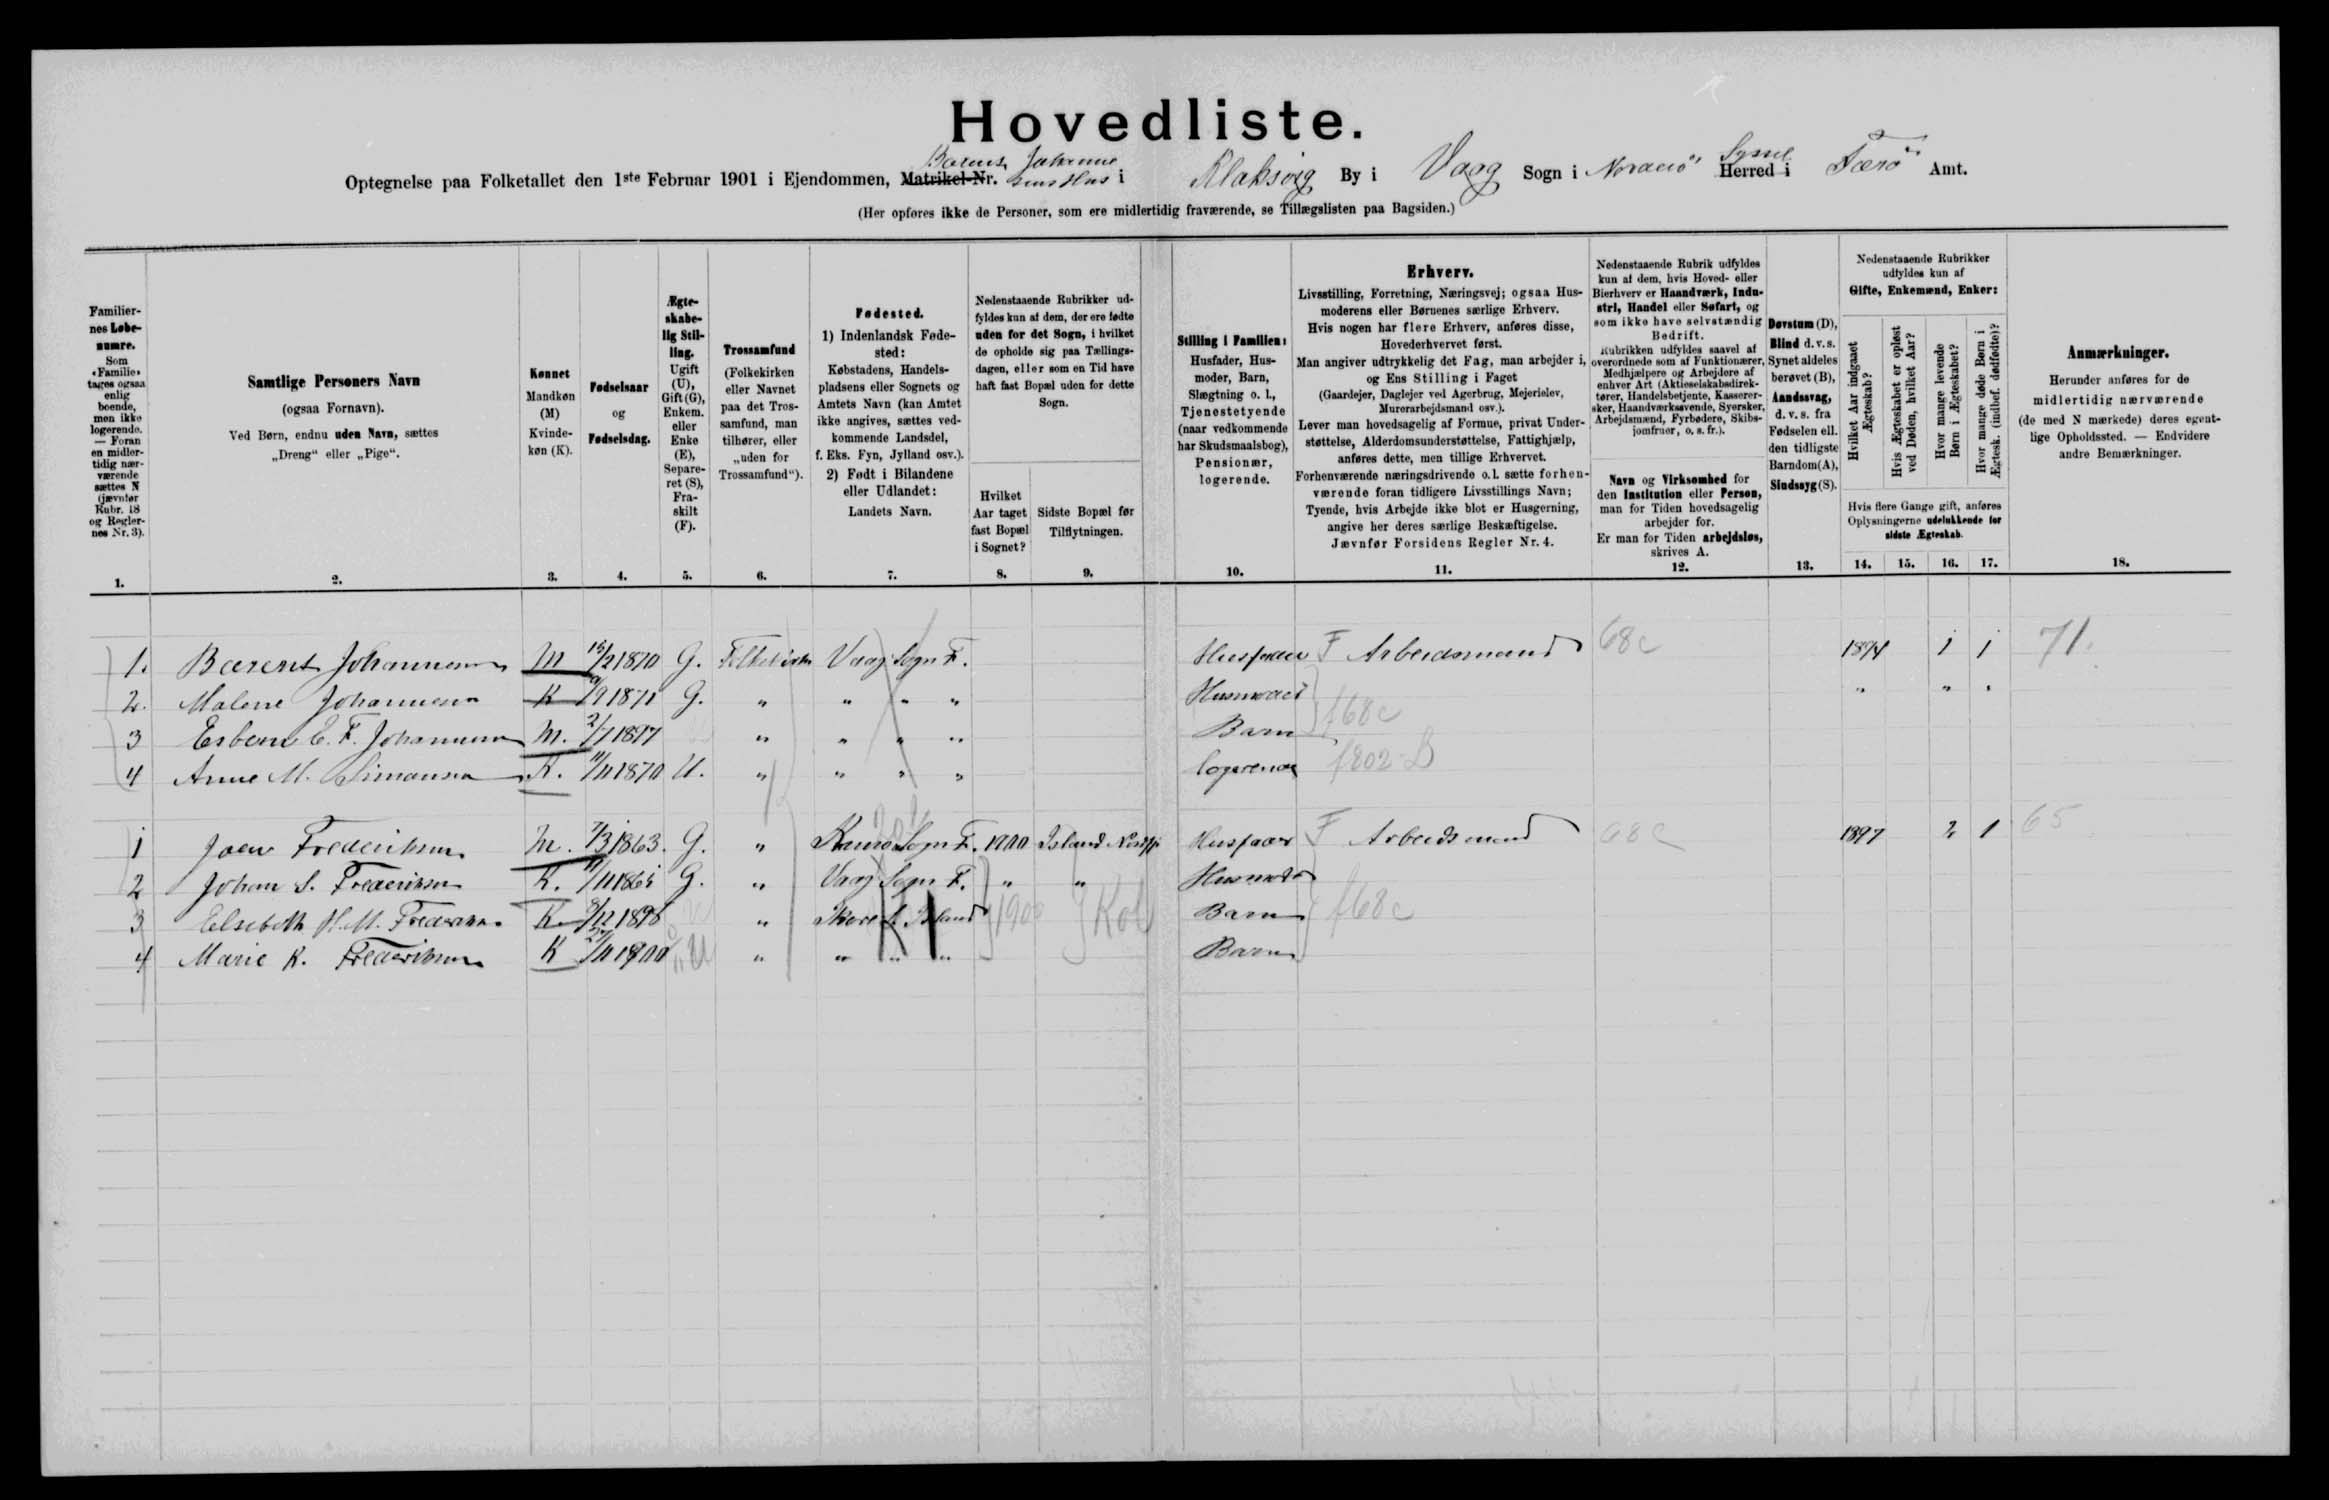 Hovedliste.
Optegnelse paa Folketallet den 1ste Februar 1901 i Ejendommen, Matrikel-Nr. i Klaksvig By i Vaag Sogn i Norderö Syssel Herred i Færö Amt.
(Her opføres ikke de Personer, som ere midlertidig fraværende, se Tillægslisten paa Bagsiden.)
Familiernes Løbenumre. Som «Familie» tages ogsaa enlig boende, men ikke logerende. — Foran en midlertidig nærværende sættes N (jævnfør Rubr. 18 og Reglernes Nr. 3).
Samtlige Personers Navn
(ogsaa Fornavn).
Ved Børn, endnu uden Navn, sættes
„Dreng“ eller „Pige“.
Kønnet
Mandkøn (M)
Kvindekøn (K).
Fødselsaar og Fødselsdag.
Ægteskabelig Stilling. Ugift (U), Gift (G), Enkem. eller Enke (E), Separeret (S), Fraskilt (F).
Trossamfund
(Folkekirken eller Navnet paa det Trossamfund, man tilhører, eller „uden for Trossamfund“).
Fødested.
1) Indenlandsk Fødested:
Købstadens, Handelspladsens eller Sognets og Amtets Navn (kan Amtet ikke angives, sættes vedkommende Landsdel, f. Eks. Fyn, Jylland osv.).
2) Født i Bilandene eller Udlandet:
Landets Navn.
Nedenstaaende Rubrikker udfyldes kun af dem, der ere fødte uden for det Sogn, i hvilket de opholde sig paa Tællingsdagen, eller som en Tid have haft fast Bopæl uden for dette Sogn.
Hvilket Aar taget fast Bopæl i Sognet?
Sidste Bopæl før Tilflytningen.
Stilling i Familien:
Husfader, Husmoder, Barn, Slægtning o. l., Tjenestetyende (naar vedkommende har Skudsmaalsbog), Pensionær, logerende.
Erhverv.
Livsstilling, Forretning, Næringsvej; ogsaa Husmoderens eller Børnenes særlige Erhverv.
Hvis nogen har flere Erhverv, anføres disse, Hovederhvervet først.
Man angiver udtrykkelig det Fag, man arbejder i, og Ens Stilling i Faget
(Gaardejer, Daglejer ved Agerbrug, Mejerielev, Murerarbejdsmand osv.).
Lever man hovedsagelig af Formue, privat Understøttelse, Alderdomsunderstøttelse, Fattighjælp, anføres dette, men tillige Erhvervet.
Forhenværende næringsdrivende o. l. sætte forhenværende foran tidligere Livsstillings Navn;
Tyende, hvis Arbejde ikke blot er Husgerning, angive her deres særlige Beskæftigelse.
Jævnfør Forsidens Regler Nr. 4.
Nedenstaaende Rubrik udfyldes kun af dem, hvis Hoved- eller Bierhverv er Haandværk, Industri, Handel eller Søfart, og som ikke have selvstændig Bedrift.
Rubrikken udfyldes saavel af overordnede som af Funktionærer, Medhjælpere og Arbejdere af enhver Art (Aktieselskabsdirektører, Handelsbetjente, Kasserersker, Haandværkssvende, Syersker, Arbejdsmænd, Fyrbødere, Skibsjomfruer, o. s. fr.).
Navn og Virksomhed for den Institution eller Person, man for Tiden hovedsagelig arbejder for.
Er man for Tiden arbejdsløs, skrives A.
Døvstum (D), Blind d. v. s. Synet aldeles berøvet (B), Aandssvag, d. v. s. fra Fødselen ell. den tidligste Barndom (A), Sindssyg (S).
Nedenstaaende Rubrikker udfyldes kun af Gifte, Enkemænd, Enker:
Hvilket Aar indgaaet Ægteskab?
Hvis Ægteskabet er opløst ved Døden, hvilket Aar?
Hvor mange levende Børn i Ægteskabet?
Hvor mange døde Børn i Ægtesk. (indbef. dødfødte)?
Hvis flere Gange gift, anføres Oplysningerne udelukkende for sidste Ægteskab.
Anmærkninger.
Herunder anføres for de midlertidig nærværende (de med N mærkede) deres egentlige Opholdssted. — Endvidere andre Bemærkninger.
1. 2. 3. 4. 5. 6. 7. 8. 9. 10. 11. 12. 13. 14. 15. 16. 17. 18.
1. Johannesen M 1870 G. Folkekirken Vaag Sogn F. Husfader F Arbeidsmand 68c 1894 1 1 71.
2. Malene Johannesen K 1871 G. " " " " Husmoder " " "
3 Johannesen M. 2/7 1897 " " " " Barn f68c
4 Anne M. Simonsen K. 11/11 1870 U. " " " " logerende f802
1 Frederiksen M. 7/3 1863. G. " Sogn F. 1900 Island Husfader F Arbeidsmand 68c 1897 2 1 65
2 Johan S. Frederiksen K. G. " Vaag Sogn F. " " Husmoder
3 Elsebeth M. Frederiksen K. " Island 1900 Barn f68c
4 Marie K. Frederiksen K 1900 U " " " " Barn